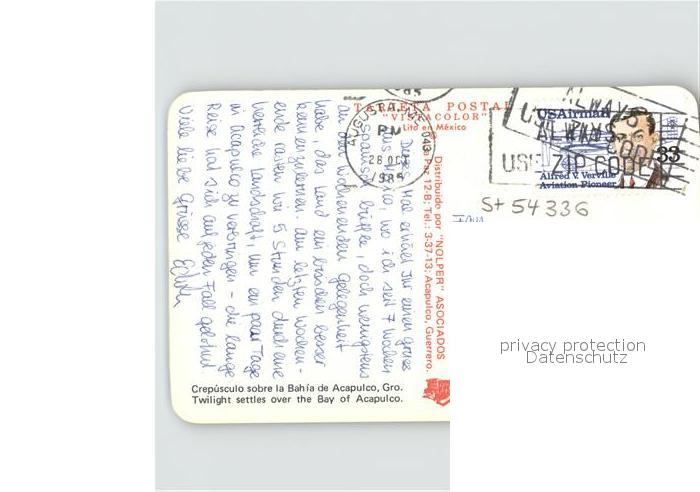 TARJETA POSTAL
"VISTACOLOR"
Lito en México
AUGUSTA, ME 043
PM
28 OCT
1985
ALWAYS
USE ZIP CODE
USAirmail
33
Alfred V. Verville
Aviation Pioneer
St 54336
Distribuido por "NOLPER" ASOCIADOS
Paz 12-B; Tel.: 3-37-13; Acapulco, Guerrero.
Dieses Mal erhältst Ihr einen Gruss
aus Mexico, wo ich seit 7 Wochen
Spanisch büffle, doch wenigstens
an den Wochenenden Gelegenheit
habe, das Land ein bisschen besser
kennenzulernen. Am letzten Wochen-
ende rasten wir 5 Stunden durch eine
herrliche Landschaft, um ein paar Tage
in Acapulco zu verbringen - die lange
Reise hat sich auf jeden Fall gelohnt
Viele liebe Grüsse
Crepúsculo sobre la Bahía de Acapulco, Gro.
Twilight settles over the Bay of Acapulco.
privacy protection
Datenschutz